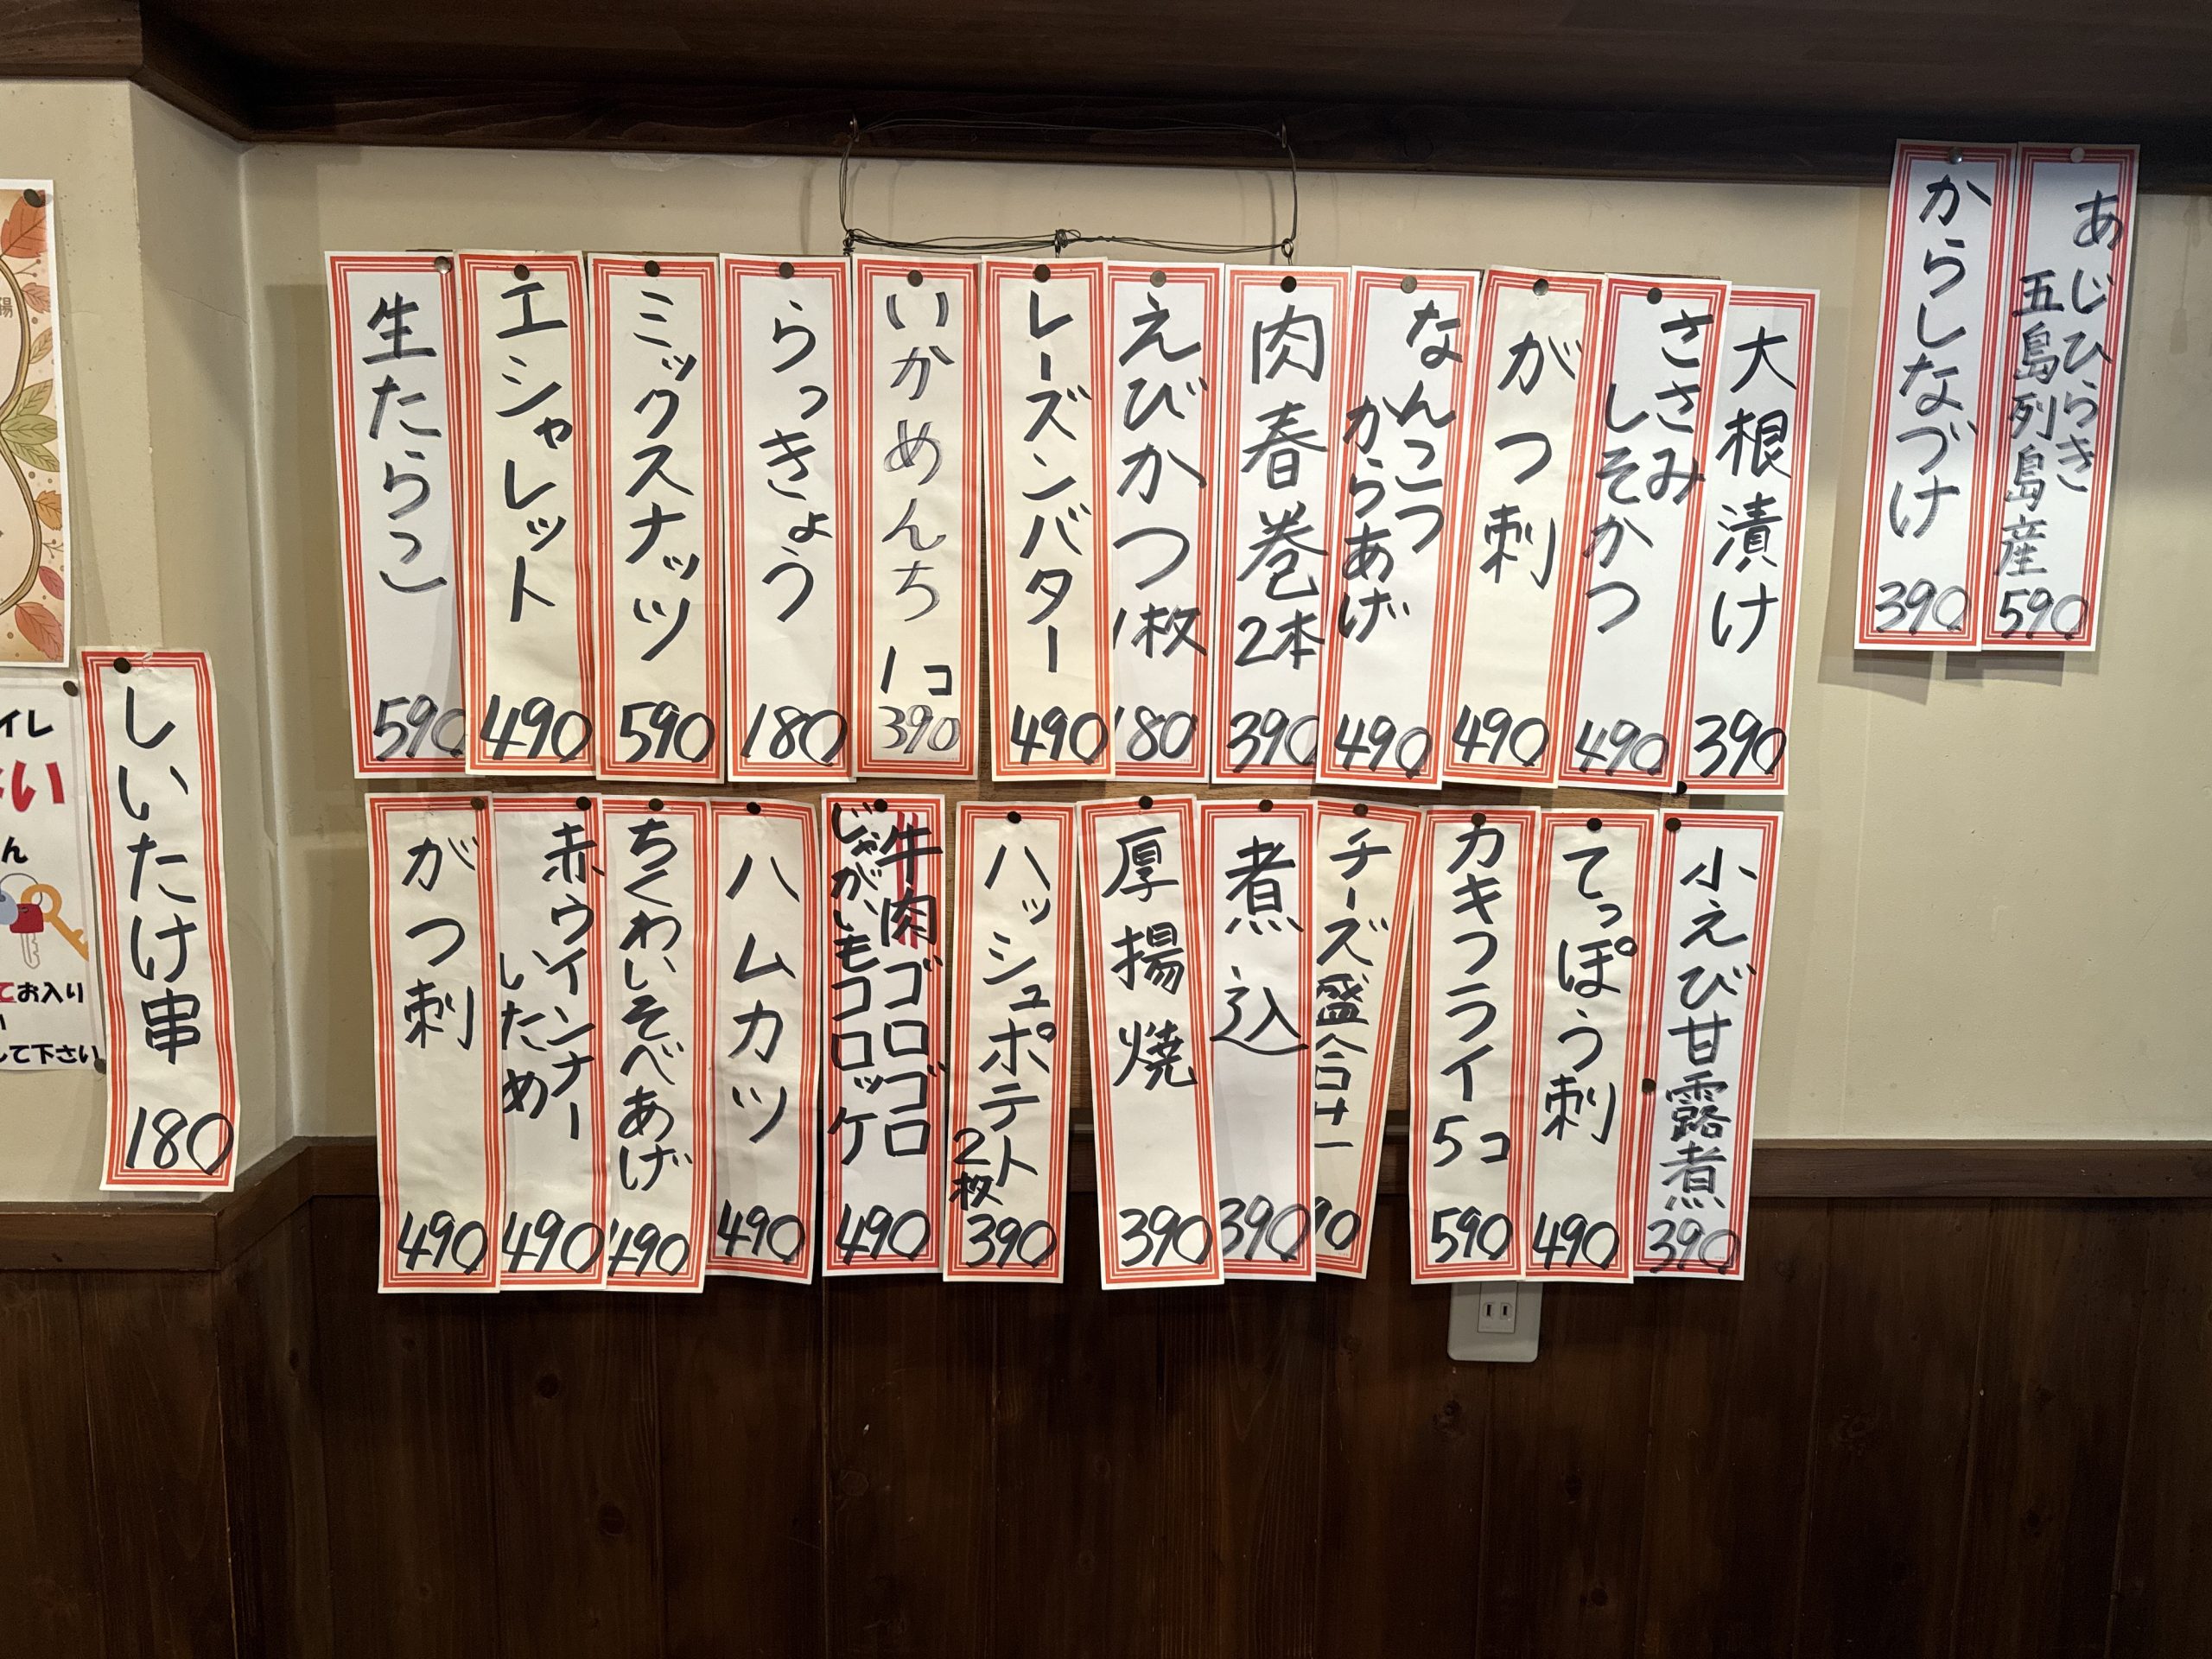 あじひらき
五島列島産
590
からしなづけ
390
大根漬け
390
ささみ
しそかつ
490
がつ刺
490
なんこつ
からあげ
490
肉春巻2本
390
えびかつ1枚
180
レーズンバター
490
いかめんち 1コ
390
らっきょう
180
ミックスナッツ
590
エシャレット
490
生たらこ
590
小えび甘露煮
390
てっぽう刺
490
カキフライ5コ
590
チーズ盛合せ
90
煮込
390
厚揚焼
390
ハッシュポテト
2枚
390
牛肉ゴロゴロ
じゃがいもコロッケ
490
ハムカツ
490
ちくわいそべあげ
490
赤ウインナー
いため
490
がつ刺
490
しいたけ串
180
イレ
い
ん
てお入り
して下さい